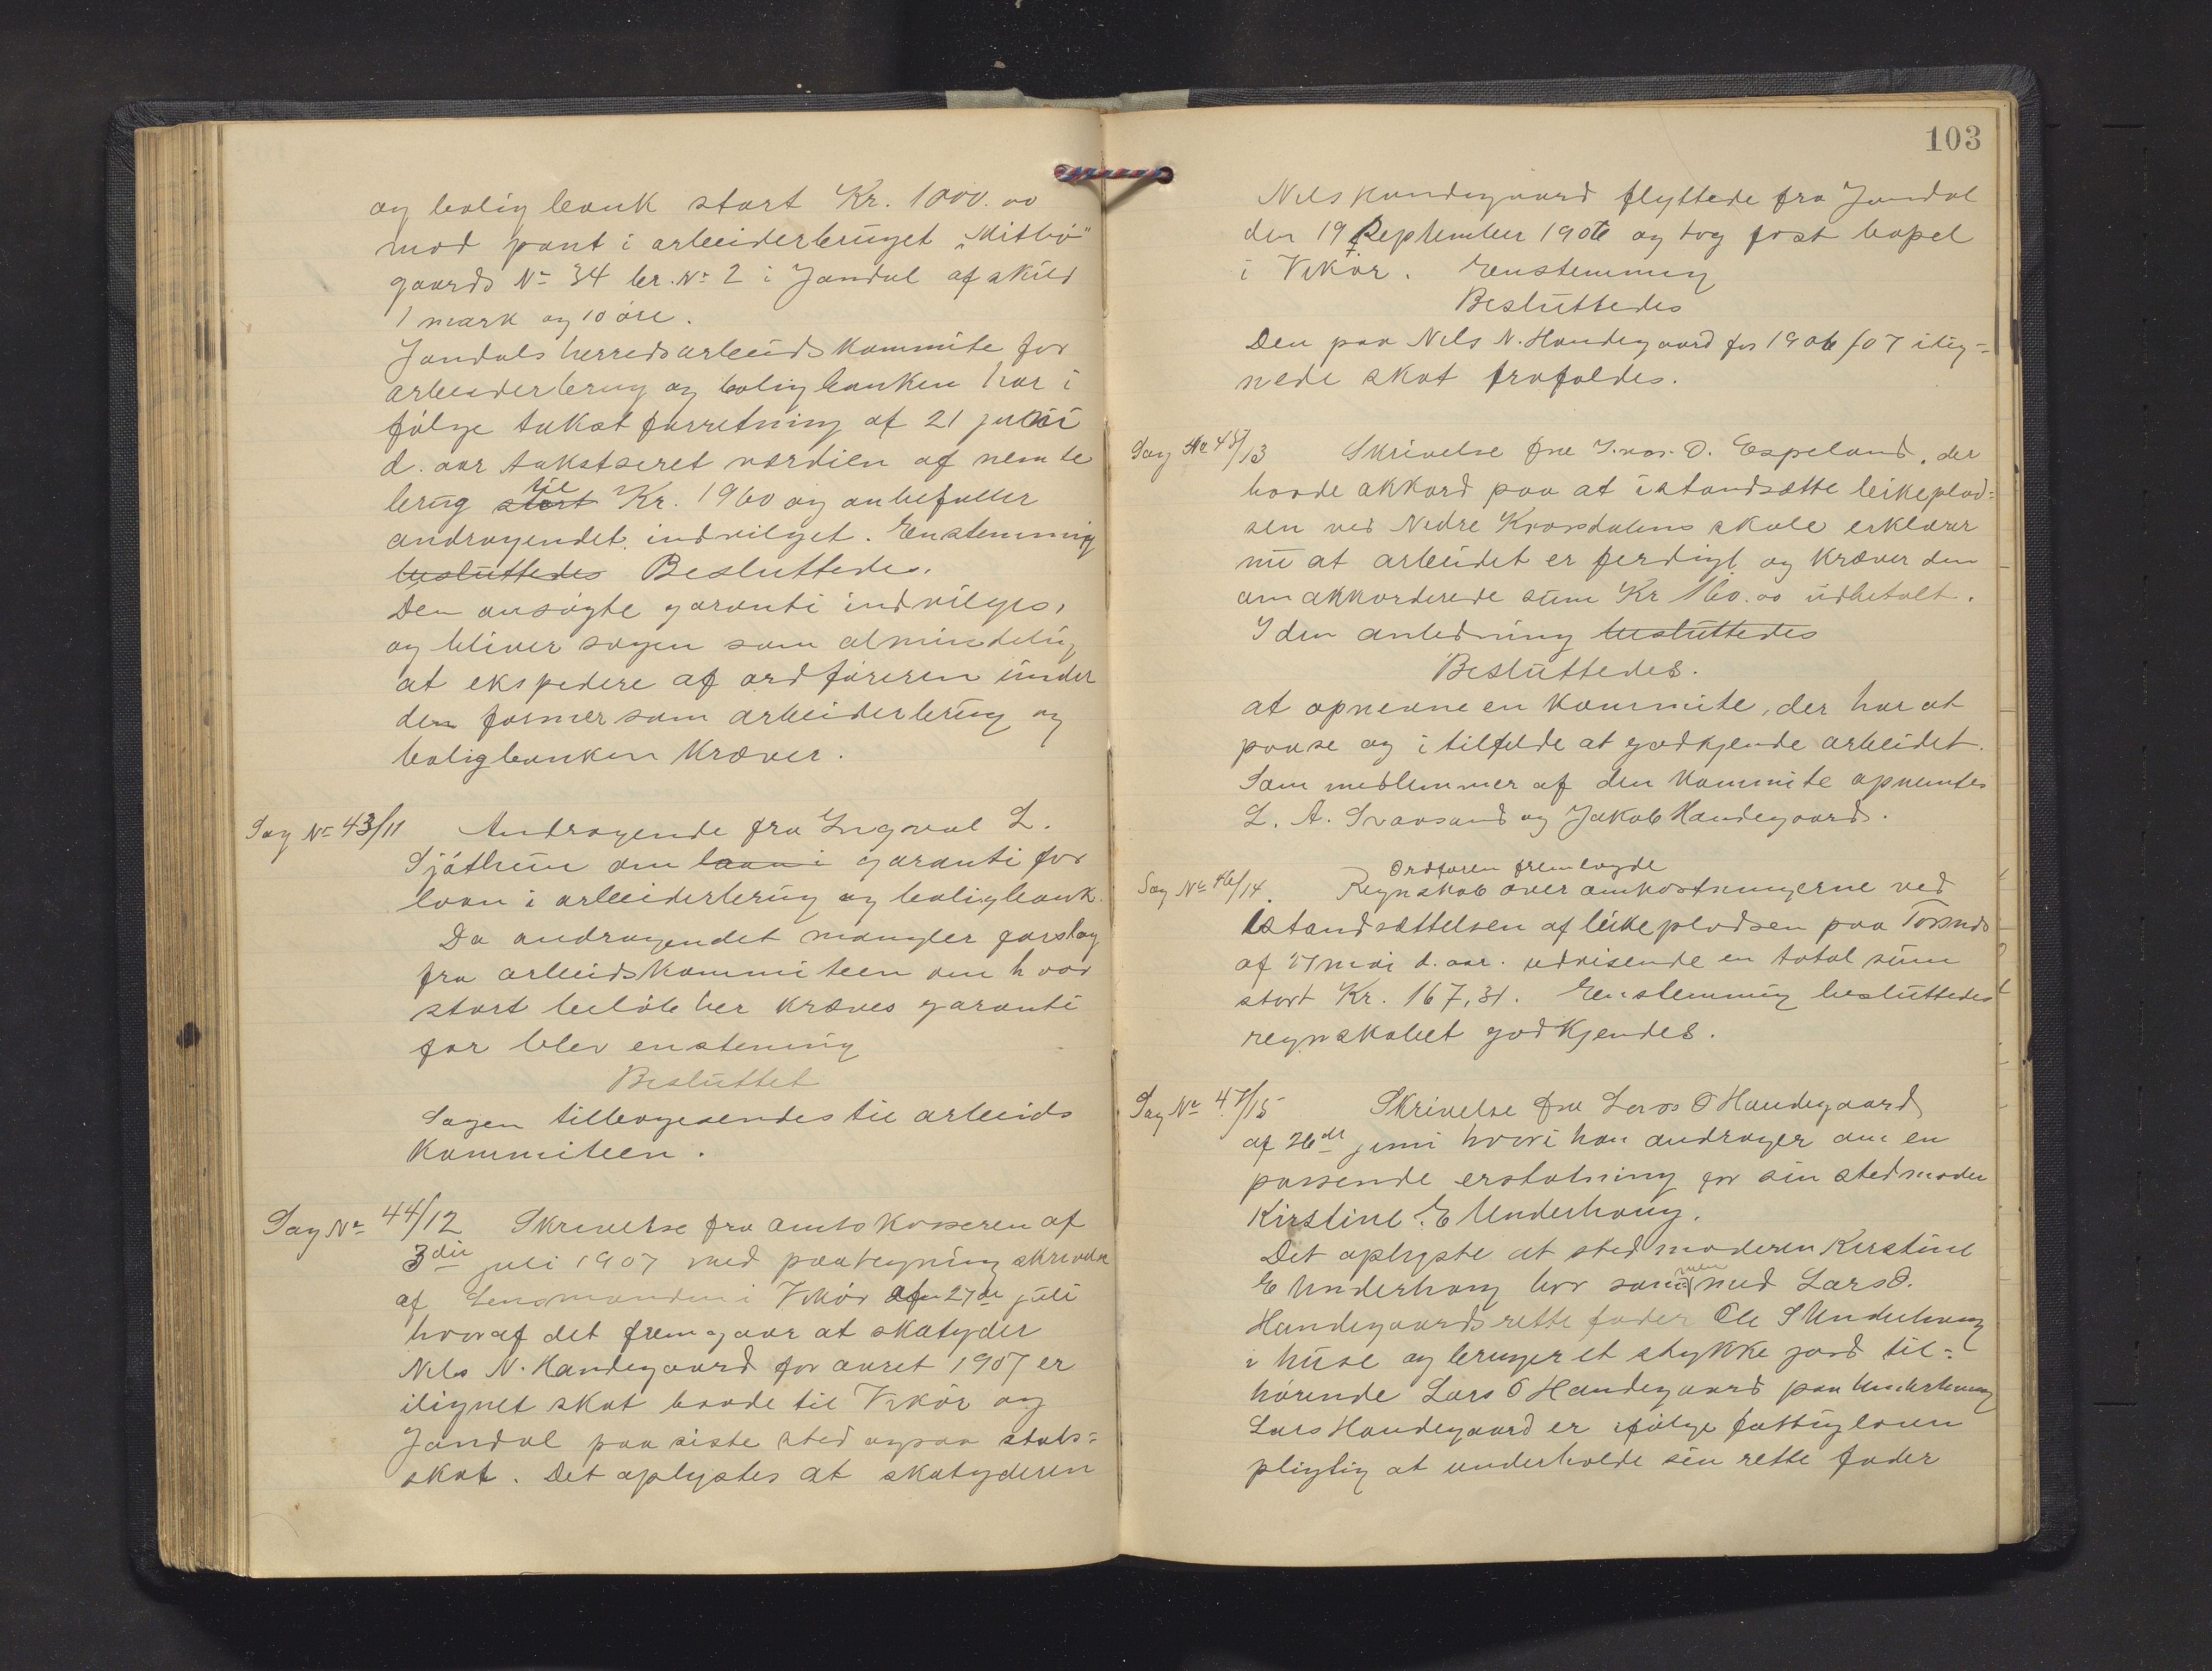 og bolig bank stort Kr. 1000.00
mod pant i arbeiderbruget „Mitbö"
gaards No 34 br. No 2 i Jondal af skild
1 mark og 10 øre.
Jondals herredsarbeidskommite for
arbeiderbrug og boligbanken har i
følge takstforretning af 21 juni
d. aar takstseret værdien af nemte
brug stort til Kr. 1960 og anbefaller
andragendet indvilget. Enstemmig
besluttedes Besluttedes.
Den ansøgte garanti indvilges,
og bliver sagen som almindelig
at ekspedere af ordføreren under
den former som arbeiderbrug og
boligbanken kræver.
Sag No 43/11 Andragende fra Ingval L.
Sjøthun om laan i garanti for
laan i arbeiderbrug og boligbank.
Da andragendet mangler forslag
fra arbeidskommiteen om hvor
stort beløb her kræves garanti
for blev enstemig
Besluttet
Sagen tilbagesendes til arbeids
kommiteen.
Sag No 44/12 Skrivelse fra amtskasseren af
3die juli 1907 med paategning skrivelse
af Lensmanden i Vikør af 27de juli
hvoraf det fremgaar at skatyder
Nils N. Handegaard for aaret 1907 er
ilignet skat baade til Vikør og
Jondal paa siste sted ogsaa stats=
skat. Det oplystes at skatyderen
103
Nils Handegaard flyttede fra Jondal
den 19 September 1906 og tog fast bopel
i Vikør. Enstemmig
Besluttedes
Den paa Nils N. Handegaard for 1906/07 ilig=
nede skat frafaldes.
Sag No 45/13 Skrivelse fra O. Espeland, der
havde akkord paa at istandsætte leikeplad=
sen ved Nedre Krossdalens skole erklærer
nu at arbeidet er ferdigt og kræver den
omakkorderede sum Kr 160.00 udbetalt.
I den anledning besluttedes
Besluttedes.
at opnevne en kommite, der har at
paase og i tilfelde at godkjende arbeidet.
Som medlemmer af den kommite opnemtes
L. A. Svaasand og Jakob Handegaard.
Ordføren fremlagde
Sag No 46/14. Regnskab over omkostningerne ved
istandsættelsen af leikepladsen paa Torsnes
af 27 mai d. aar. udvisende en total sum
stort Kr. 167,31. Enstemmig besluttedes
regnskabet godkjendes.
Sag No 47/15 Skrivelse fra Lars O Handegaard
af 26de juni hvori han andrager om en
passende erstatning for sin stedmoder
Kirstine E Underhaug.
Det oplyste at stedmoderen Kirstine
E Underhaug bor sammen med Lars O.
Handegaards rette fader Ole S Underhaug
i huse og bruger et stykke jord til=
hørende Lars O Handegaard paa Underhaug
Lars Handegaard er ifølge fattigloven
pligtig at underholde sin rette fader